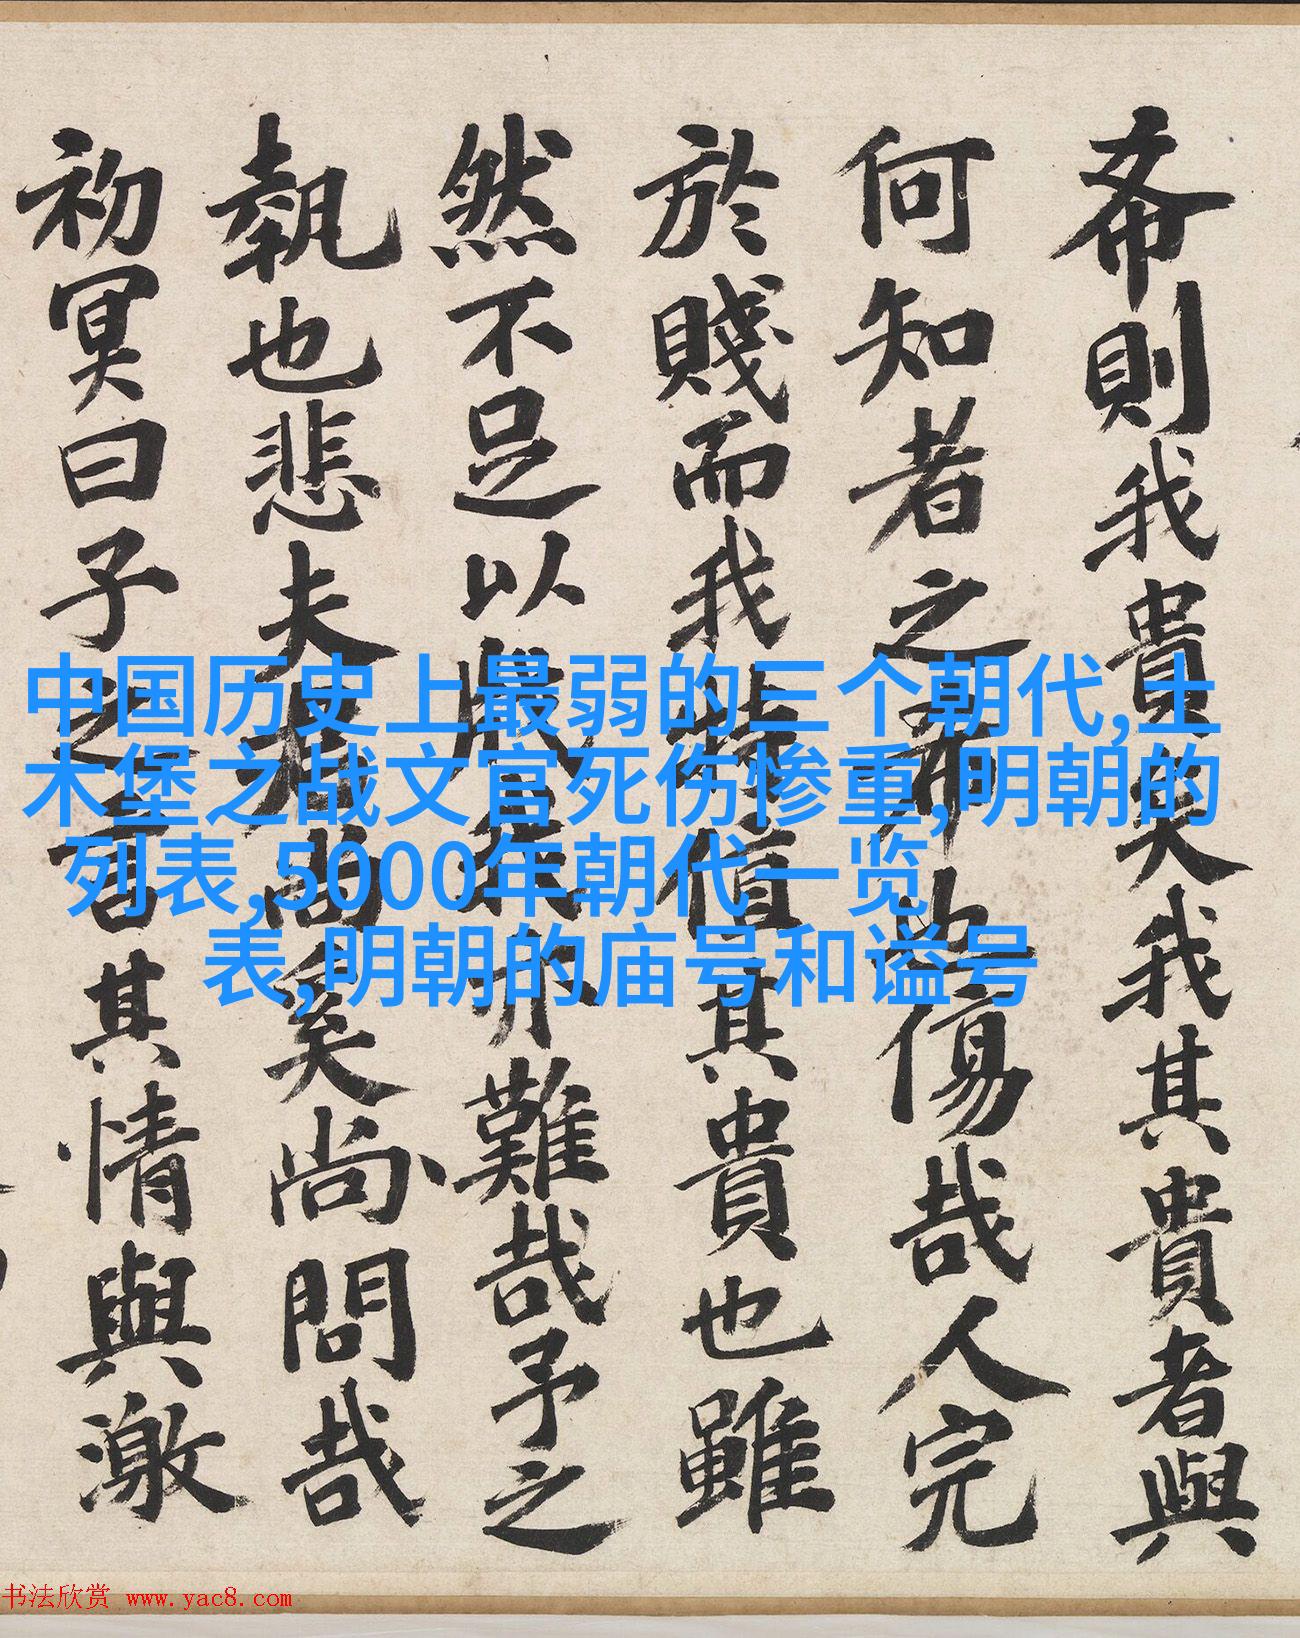 希則我貴矣我其貴者與
何知者之希也傷哉人完
於賤而我特值其貴也雖
然不足以亦難哉予之
執也悲夫尚奚尚問哉
初冥曰子之言其情與激
中国历史上最弱的三个朝代,土
木堡之战文官死伤惨重,明朝的
列表,5000年朝代一览
表,明朝的庙号和谥号
书法欣赏 www.yac8.com